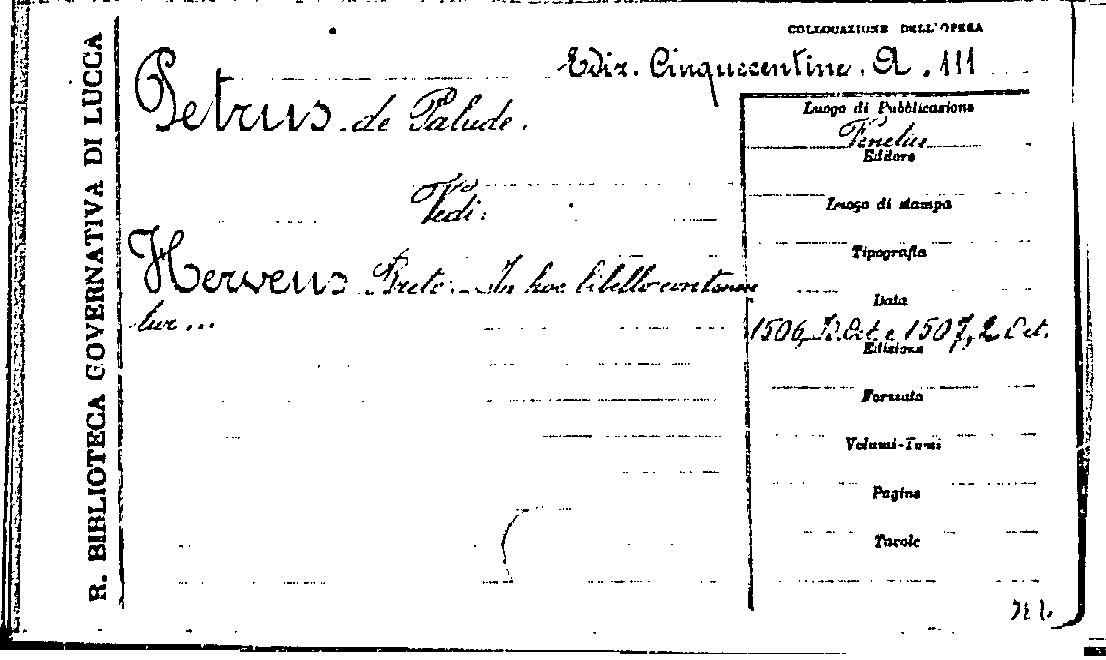 R. BIBLIOTECA GOVERNATIVA DI LUCCA
COLLOCAZIONE DELL'OPERA
Ediz. Cinquecentine. A. 111
Petrus de Palude.
Vedi:
Herveus Brito. In hoc libello contenen
tur...
Luogo di Pubblicazione
Venetiis
Editore
Luogo di stampa
Tipografia
Data
1506, Oct. e 1507, 2 Oct.
Edizione
Formato
Volumi-Tomi
Pagine
Tavole